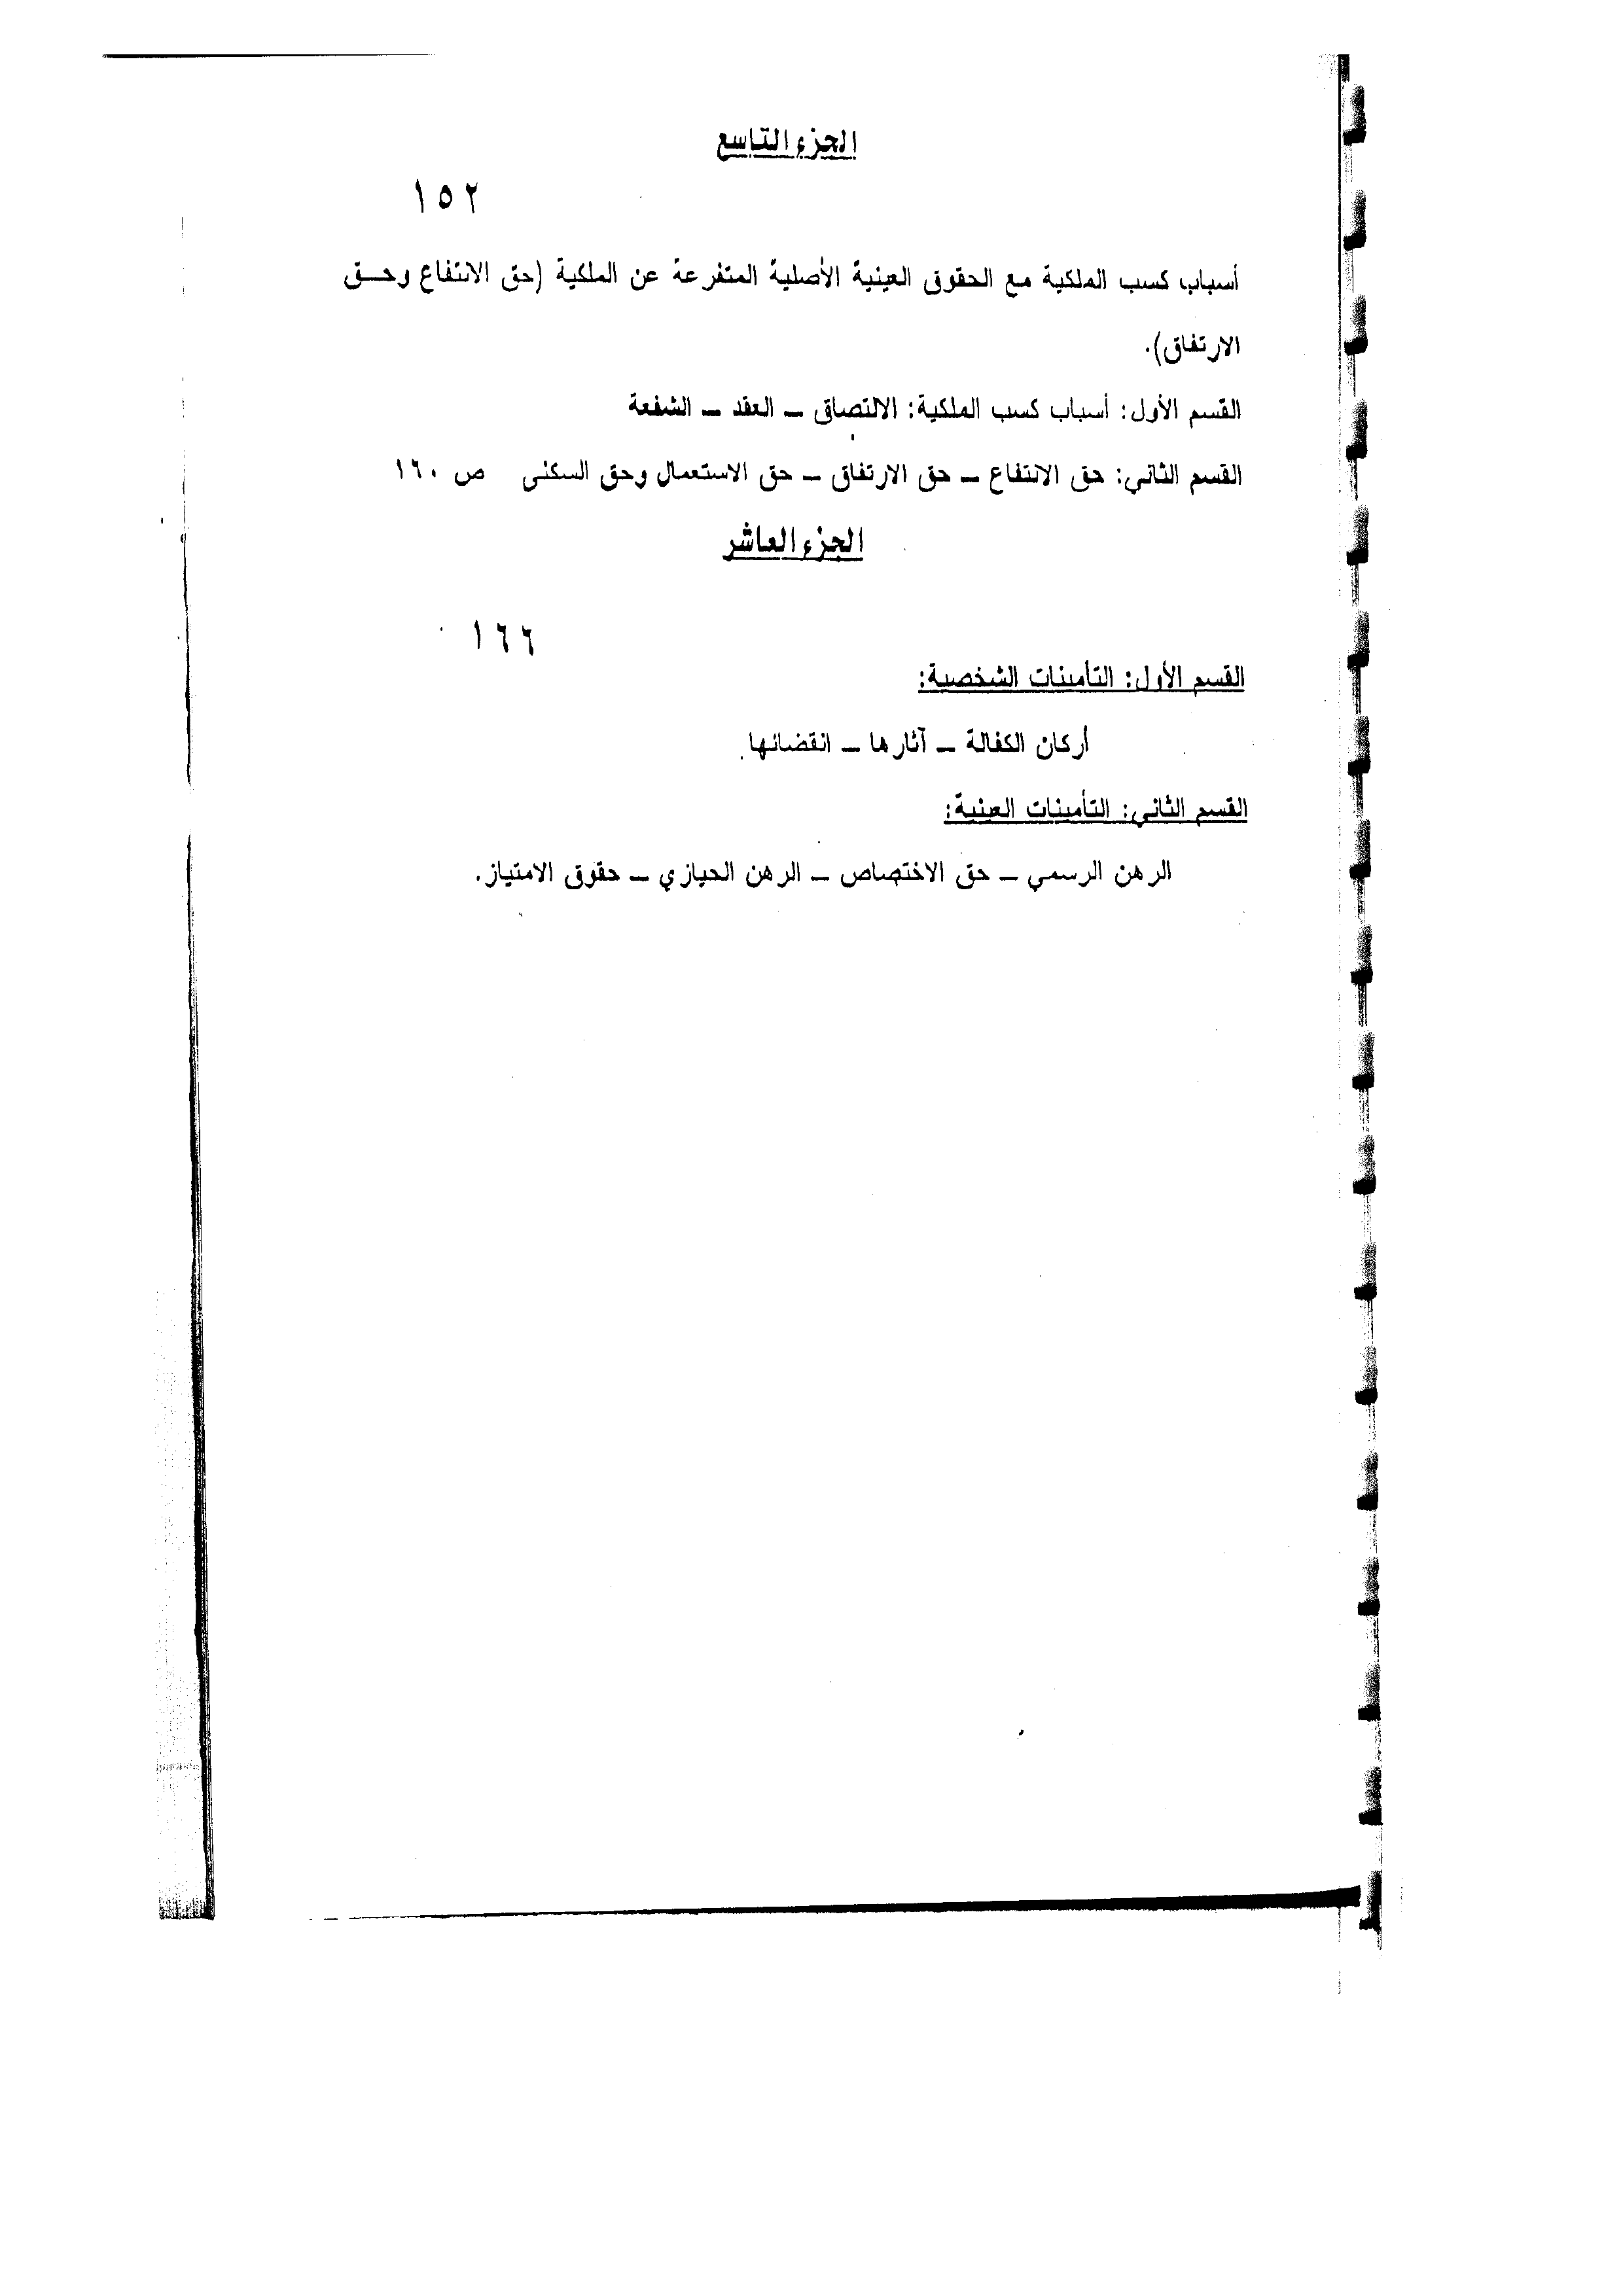 الجزء التاسع
١٥٢
أسباب كسب الملكية مع الحقوق العينية الأصلية المتفرعة عن الملكية (حق الانتفاع وحــق
الارتفاق).
القسم الأول: أسباب كسب الملكية: الالتصاق – العقد – الشفعة
القسم الثاني: حق الانتفاع – حق الارتفاق – حق الاستعمال وحق السكنى ص ١٦٠
الجزء العاشر
١٦٦
القسم الأول: التأمينات الشخصية:
أركان الكفالة – آثارها – انقضائها.
القسم الثاني: التأمينات العينية:
الرهن الرسمي – حق الاختصاص – الرهن الحيازي – حقوق الامتياز.